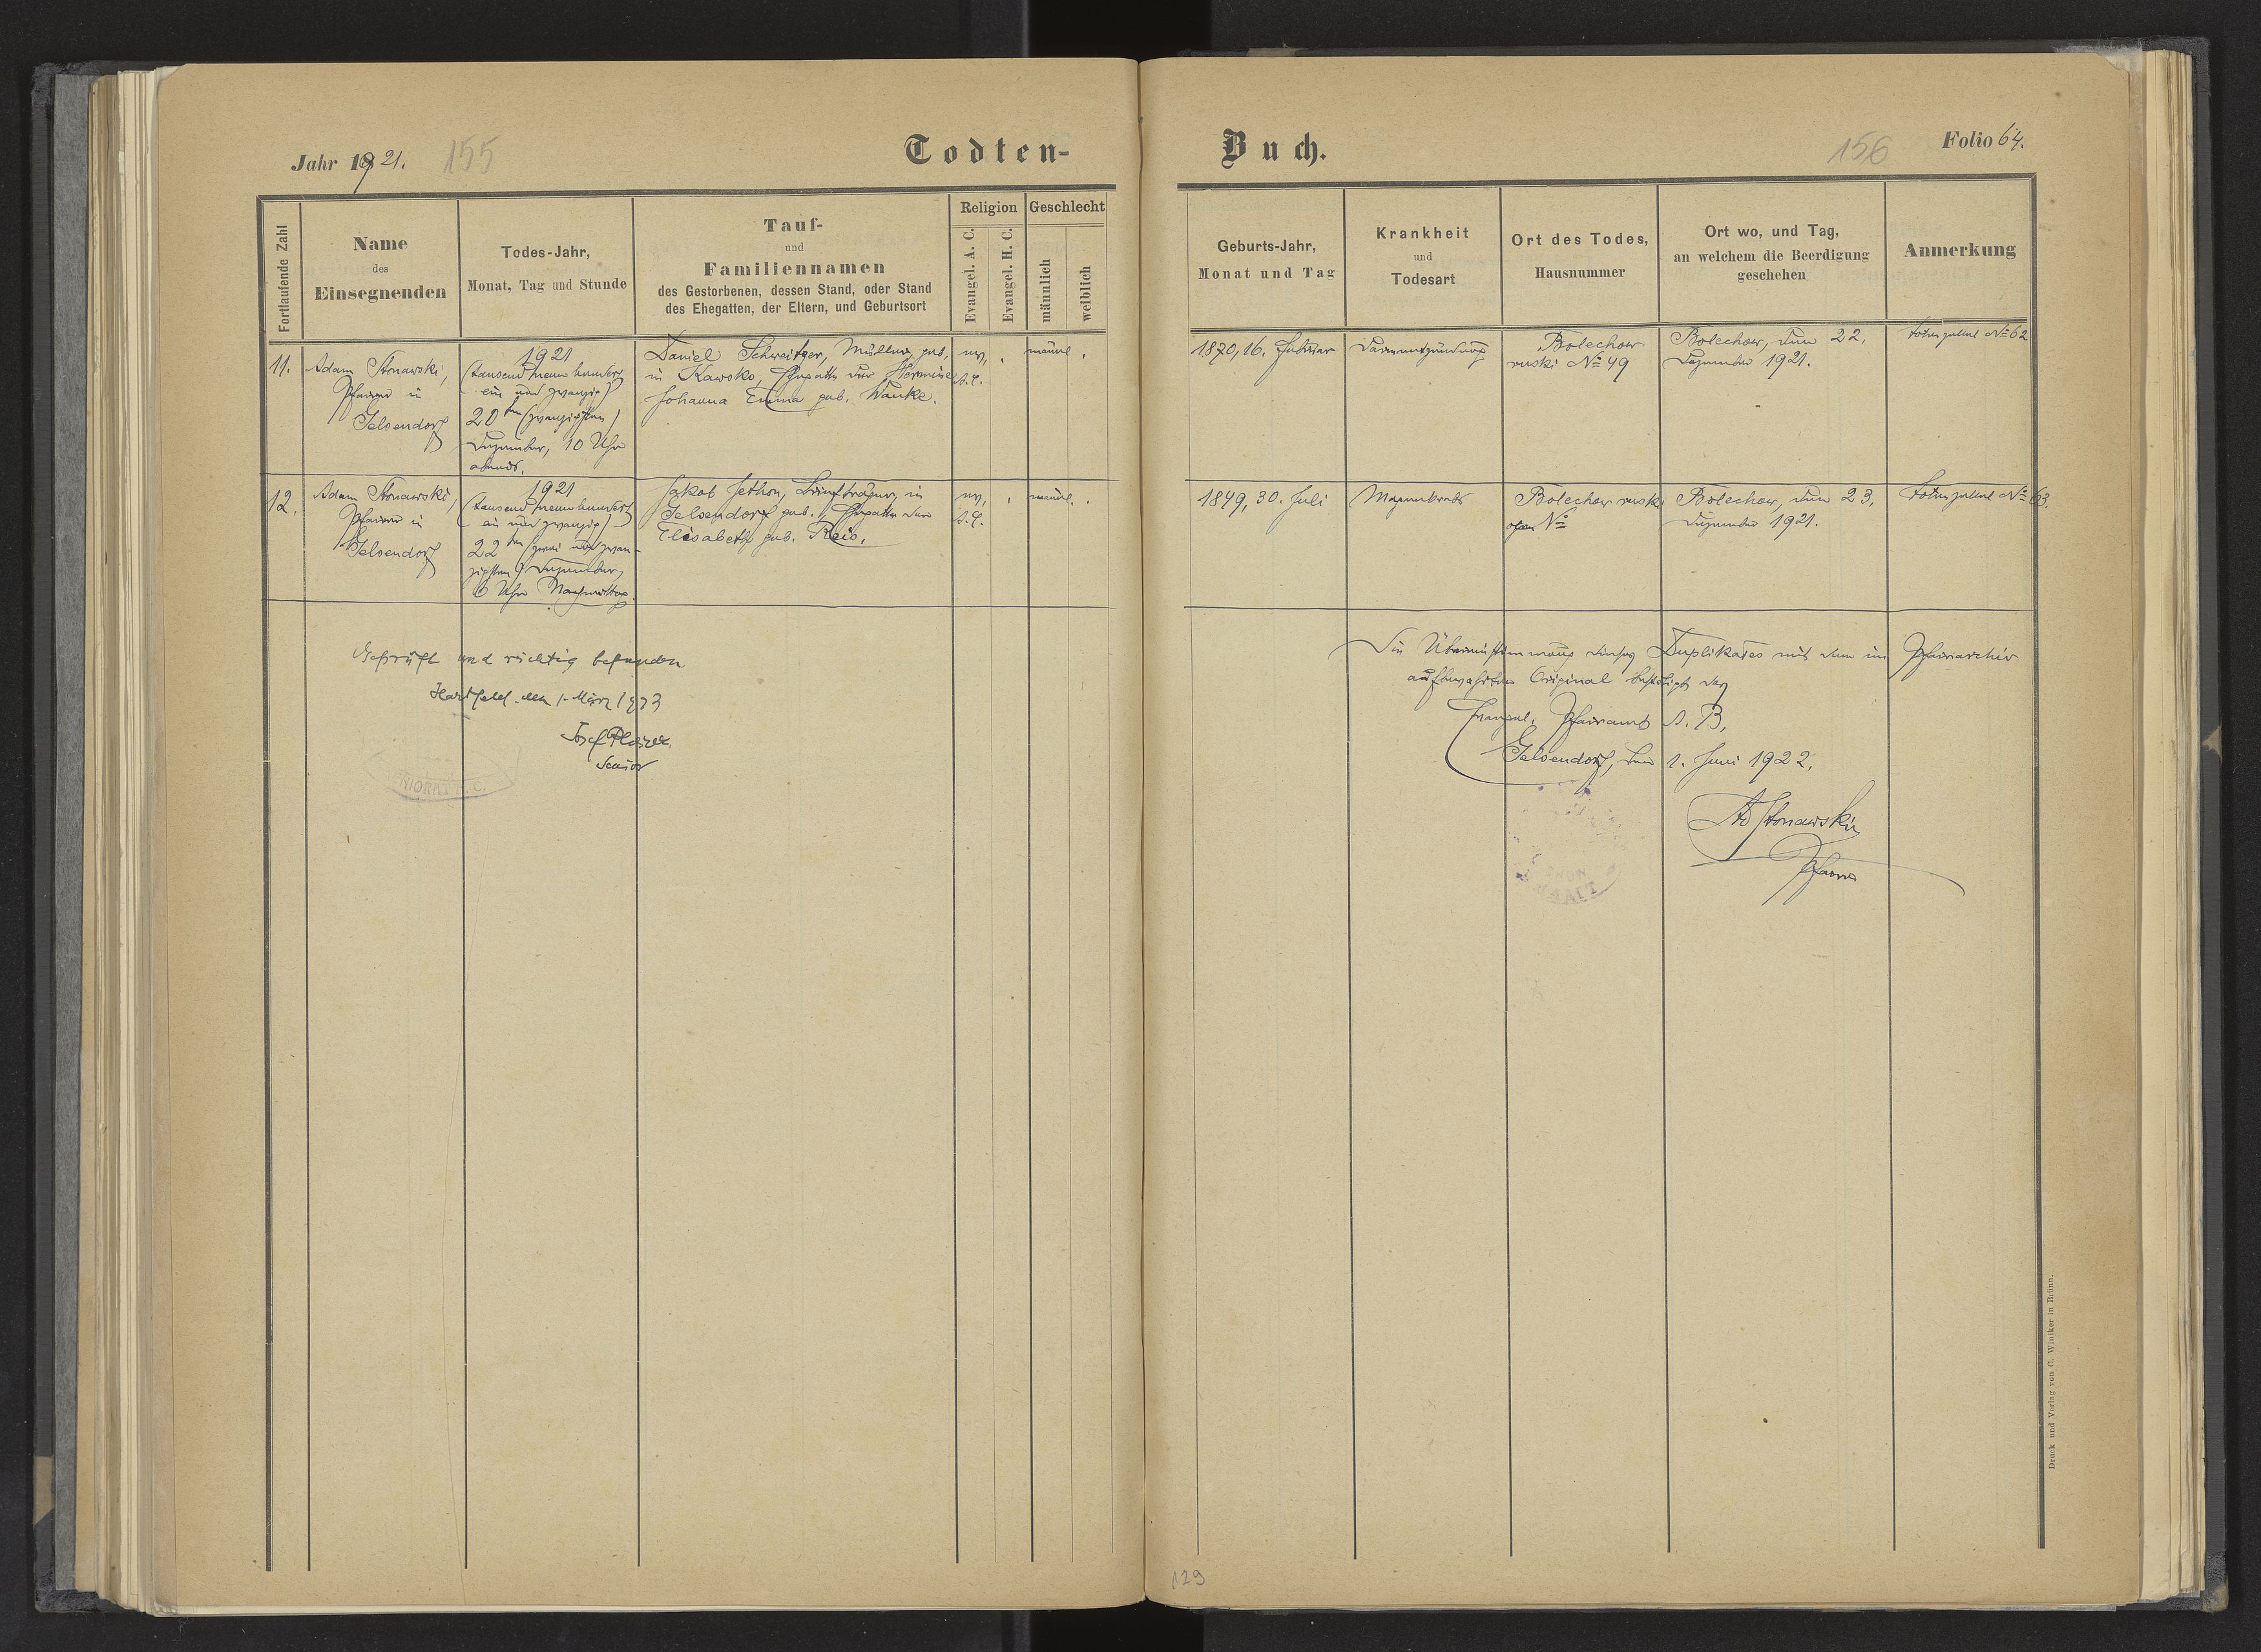 Jahr 1921.
155
Todten-
Buch.
156
Folio 64.
Fortlaufende Zahl
Name
des
Einsegnenden
Todes-Jahr,
Monat, Tag und Stunde
Tauf-
und
Familiennamen
des Gestorbenen, dessen Stand, oder Stand
des Ehegatten, der Eltern, und Geburtsort
Religion
Evangel. A. C.
Evangel. H. C.
Geschlecht
männlich
weiblich
Geburts-Jahr,
Monat und Tag
Krankheit
und
Todesart
Ort des Todes,
Hausnummer
Ort wo, und Tag,
an welchem die Beerdigung
geschehen
Anmerkung
11.
Adam Stonawski,
Pfarrer in
Gelsendorf
1921
(tausend neun hundert
ein und zwanzig)
20ten (zwanzigsten)
Dezember, 10 Uhr
abends.
Daniel Schweitzer, Müller, geb.
in Kawsko, Ehegatte der Hermine
Johanna Emma geb. Wanke.
ev.
A.C.
männl.
1870, 16. Februar
Darmentzündung
Bolechow
ruski No 49
Bolechow, den 22.
Dezember 1921.
Totenzettel No 62
12.
Adam Stonawski,
Pfarrer in
Gelsendorf
1921
(tausend neun hundert
ein und zwanzig)
22ten (zwei und zwan-
zigsten) Dezember,
6 Uhr Nachmittag.
Jakob Jethon, Briefträger, in
Gelsendorf geb. Ehegatte der
Elisabeth geb. Reis.
ev.
A.C.
männl.
1849, 30. Juli
Magenkrebs
Bolechow ruski
ohne No
Bolechow, den 23.
Dezember 1921.
Totenzettel No 63.
Geprüft und richtig befunden
Hartfeld den 1. März 1923
Josef
Senior
NIORAT A. C.
Die Übereinstimmung dieses Duplikates mit dem im Pfarrarchiv
aufbewahrten Original bestätigt das
Evangel. Pfarramt A. B.
Gelsendorf, den 1. Juni 1922.
Ad Stonawski
Pfarrer
129
Druck und Verlag von C. Winiker in Brünn.